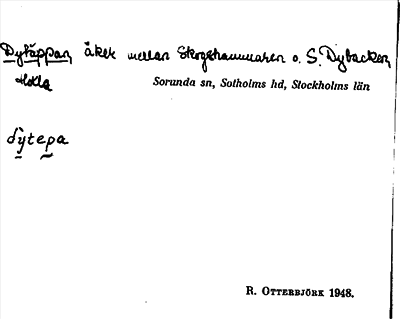 Dytäppan, åker mellan Skogshammaren o. S. Dybacken,
Holla
Sorunda sn, Sotholms hd, Stockholms län
dytepa
R. OTTERBJÖRK 1948.